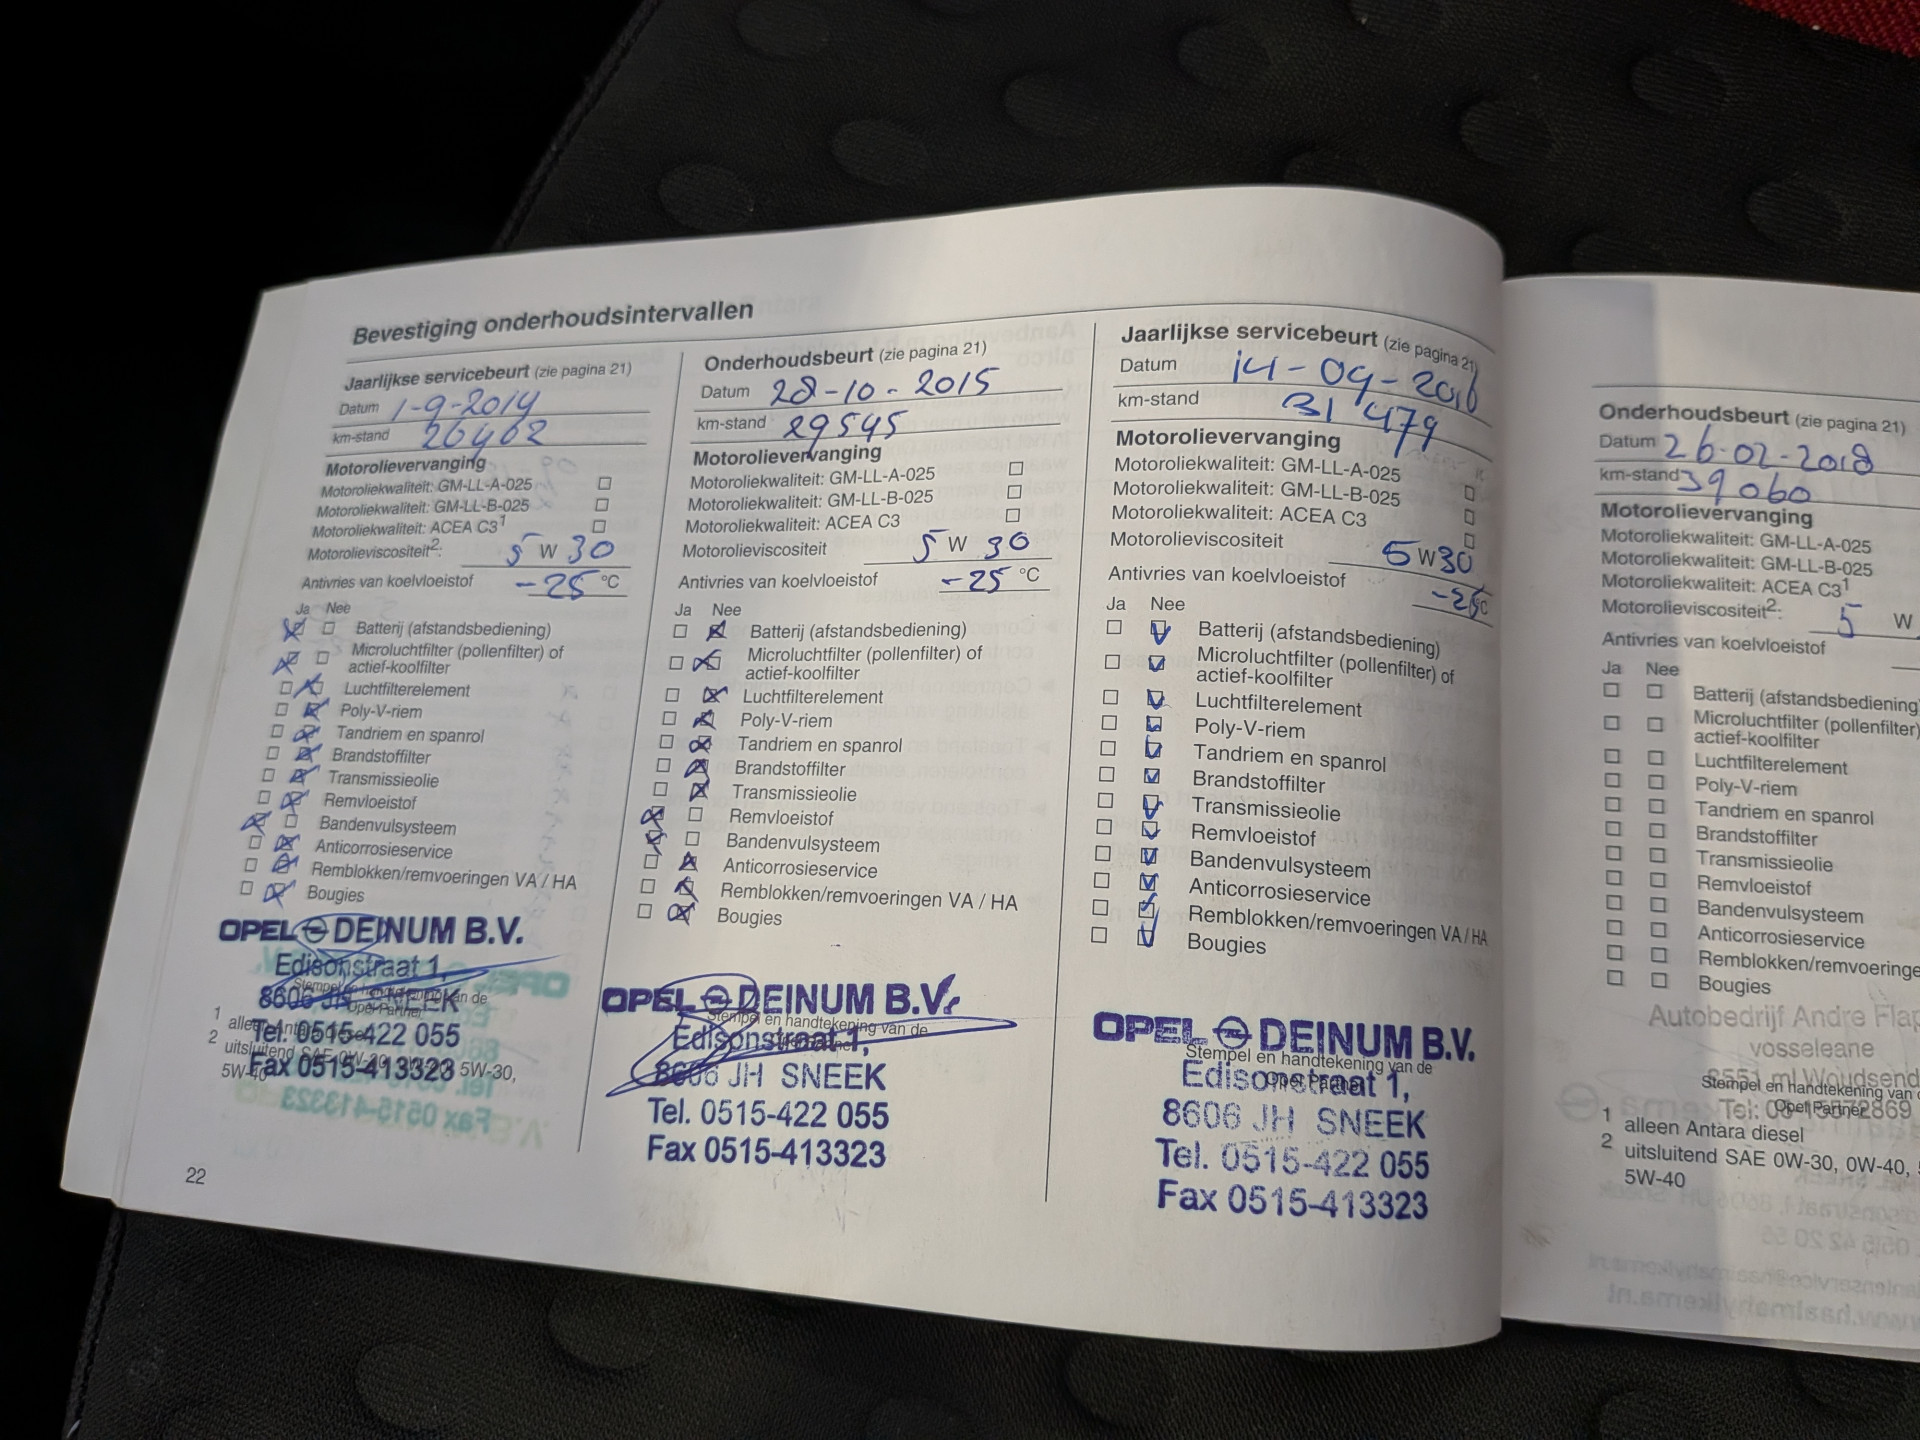 Bevestiging onderhoudsintervallen
Jaarlijkse servicebeurt (zie pagina 21)
Datum 1-9-2014
km-stand 26462
Motorolievervanging
Motoroliekwaliteit: GM-LL-A-025
Motoroliekwaliteit: GM-LL-B-025
Motoroliekwaliteit: ACEA C3¹
Motorolieviscositeit²: 5 W 30
Antivries van koelvloeistof -25 °C
Ja Nee
Batterij (afstandsbediening)
Microluchtfilter (pollenfilter) of
actief-koolfilter
Luchtfilterelement
Poly-V-riem
Tandriem en spanrol
Brandstoffilter
Transmissieolie
Remvloeistof
Bandenvulsysteem
Anticorrosieservice
Remblokken/remvoeringen VA / HA
Bougies
OPEL DEINUM B.V.
Edisonstraat 1,
8606 JH SNEEK
Stempel en handtekening van de
Opel Partner
Tel. 0515-422 055
Fax 0515-413323
1 alleen Antara diesel
2 uitsluitend SAE 0W-30, 0W-40, 5W-30,
5W-40
22
Onderhoudsbeurt (zie pagina 21)
Datum 28-10-2015
km-stand 29545
Motorolievervanging
Motoroliekwaliteit: GM-LL-A-025
Motoroliekwaliteit: GM-LL-B-025
Motoroliekwaliteit: ACEA C3
Motorolieviscositeit 5 W 30
Antivries van koelvloeistof -25 °C
Ja Nee
Batterij (afstandsbediening)
Microluchtfilter (pollenfilter) of
actief-koolfilter
Luchtfilterelement
Poly-V-riem
Tandriem en spanrol
Brandstoffilter
Transmissieolie
Remvloeistof
Bandenvulsysteem
Anticorrosieservice
Remblokken/remvoeringen VA / HA
Bougies
OPEL DEINUM B.V.
Stempel en handtekening van de
Opel Partner
Edisonstraat 1,
8606 JH SNEEK
Tel. 0515-422 055
Fax 0515-413323
Jaarlijkse servicebeurt (zie pagina 21)
Datum 14-09-2016
km-stand 31479
Motorolievervanging
Motoroliekwaliteit: GM-LL-A-025
Motoroliekwaliteit: GM-LL-B-025
Motoroliekwaliteit: ACEA C3
Motorolieviscositeit 5 W 30
Antivries van koelvloeistof -25 °C
Ja Nee
Batterij (afstandsbediening)
Microluchtfilter (pollenfilter) of
actief-koolfilter
Luchtfilterelement
Poly-V-riem
Tandriem en spanrol
Brandstoffilter
Transmissieolie
Remvloeistof
Bandenvulsysteem
Anticorrosieservice
Remblokken/remvoeringen VA / HA
Bougies
OPEL DEINUM B.V.
Stempel en handtekening van de
Opel Partner
Edisonstraat 1,
8606 JH SNEEK
Tel. 0515-422 055
Fax 0515-413323
Onderhoudsbeurt (zie pagina 21)
Datum 26-02-2018
km-stand 39060
Motorolievervanging
Motoroliekwaliteit: GM-LL-A-025
Motoroliekwaliteit: GM-LL-B-025
Motoroliekwaliteit: ACEA C3¹
Motorolieviscositeit²: 5 W
Antivries van koelvloeistof
Ja Nee
Batterij (afstandsbediening
Microluchtfilter (pollenfilter)
actief-koolfilter
Luchtfilterelement
Poly-V-riem
Tandriem en spanrol
Brandstoffilter
Transmissieolie
Remvloeistof
Bandenvulsysteem
Anticorrosieservice
Remblokken/remvoeringe
Bougies
Autobedrijf Andre Flap
vosseleane
8551 ml Woudsend
Stempel en handtekening van
Opel Partner
Tel:
1 alleen Antara diesel
2 uitsluitend SAE 0W-30, 0W-40,
5W-40